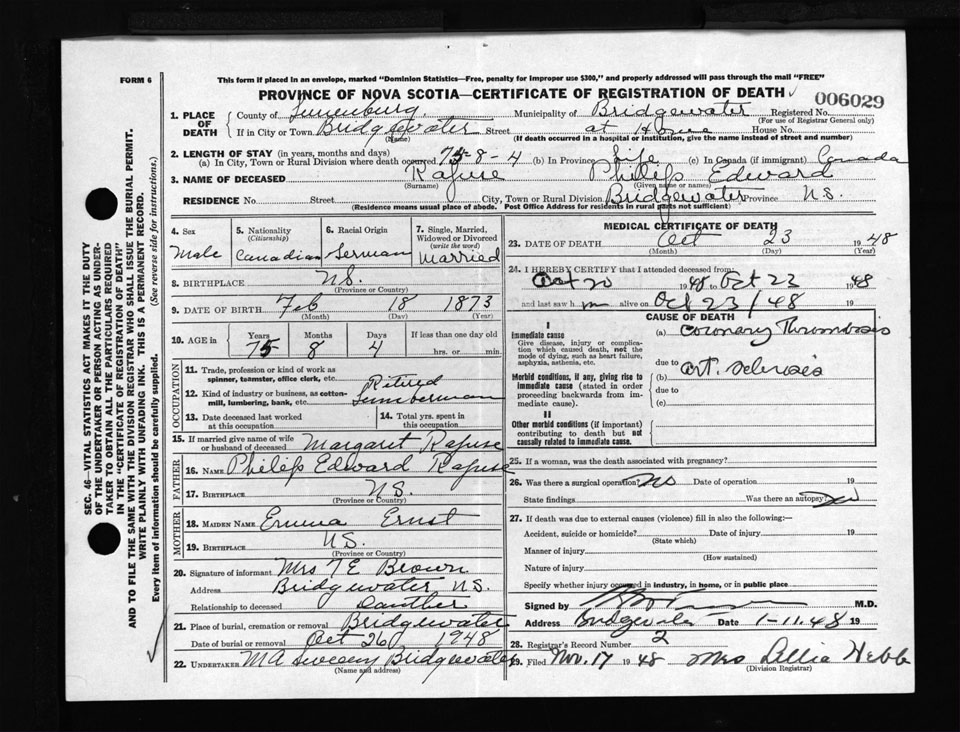 FORM 6
This form if placed in an envelope, marked "Dominion Statistics—Free, penalty for improper use $300," and properly addressed will pass through the mail "FREE"
PROVINCE OF NOVA SCOTIA—CERTIFICATE OF REGISTRATION OF DEATH
006029
1. PLACE OF DEATH
County of Lunenburg Municipality of Bridgewater Registered No.
(For use of Registrar General only)
If in City or Town Bridgewater Street at Home House No.
(Name) (If death occurred in a hospital or institution, give the name instead of street and number)
2. LENGTH OF STAY (in years, months and days)
(a) In City, Town or Rural Division where death occurred 75-8-4 (b) In Province life (c) In Canada (if immigrant) Canada
3. NAME OF DECEASED Rafuse Philip Edward
(Surname) (Given name or names)
RESIDENCE No. Street City, Town or Rural Division Bridgewater Province N.S.
(Residence means usual place of abode. Post Office Address for residents in rural parts not sufficient)
4. Sex
Male
5. Nationality
(Citizenship)
Canadian
6. Racial Origin
German
7. Single, Married, Widowed or Divorced
(write the word)
Married
8. BIRTHPLACE N.S.
(Province or Country)
9. DATE OF BIRTH Feb 18 1873
(Month) (Day) (Year)
10. AGE in
Years Months Days If less than one day old
75 8 4 hrs. or min.
OCCUPATION
11. Trade, profession or kind of work as spinner, teamster, office clerk, etc. Retired
12. Kind of industry or business, as cotton-mill, lumbering, bank, etc. Lumberman
13. Date deceased last worked at this occupation
14. Total yrs. spent in this occupation
15. If married give name of wife or husband of deceased Margaret Rafuse
FATHER
16. NAME Philip Edward Rafuse
17. BIRTHPLACE N.S.
(Province or Country)
MOTHER
18. MAIDEN NAME Emma Ernst
19. BIRTHPLACE N.S.
(Province or Country)
20. Signature of informant Mrs T E Brown
Address Bridgewater N.S.
Relationship to deceased Daughter
21. Place of burial, cremation or removal Bridgewater
Date of burial or removal Oct 26 1948
22. UNDERTAKER M A Sweeny Bridgewater
(Name and address)
MEDICAL CERTIFICATE OF DEATH
23. DATE OF DEATH Oct 23 1948
(Month) (Day)
24. I HEREBY CERTIFY that I attended deceased from:
Oct 20 1948 to Oct 23 1948
and last saw h m alive on Oct 23/48 19
CAUSE OF DEATH
I
Immediate cause
Give disease, injury or complication which caused death, not the mode of dying, such as heart failure, asphyxia, asthenia, etc.
(a) Coronary Thrombosis
due to
Morbid conditions, if any, giving rise to immediate cause (stated in order proceeding backwards from immediate cause).
(b) Art. Sclerosis
due to
(c)
II
Other morbid conditions (if important) contributing to death but not causally related to immediate cause.
25. If a woman, was the death associated with pregnancy?
26. Was there a surgical operation? No Date of operation 19
State findings Was there an autopsy? No
27. If death was due to external causes (violence) fill in also the following:—
Accident, suicide or homicide? Date 19
(State which)
Manner of injury
(How sustained)
Nature of injury
Specify whether injury occurred in industry, in home, or in public place
Signed by M.D.
Address Bridgewater Date 1-11.48 19
28. Registrar's Record Number 2
29. Filed Nov. 17 1948 Mrs Lillia Hebb
(Division Registrar)
SEC. 46—VITAL STATISTICS ACT MAKES IT THE DUTY
OF THE UNDERTAKER OR PERSON ACTING AS UNDER-
TAKER TO OBTAIN ALL THE PARTICULARS REQUIRED
IN THE "CERTIFICATE OF REGISTRATION OF DEATH"
AND TO FILE THE SAME WITH THE DIVISION REGISTRAR WHO SHALL ISSUE THE BURIAL PERMIT.
WRITE PLAINLY WITH UNFADING INK. THIS IS A PERMANENT RECORD.
Every item of information should be carefully supplied. (See reverse side for instructions.)